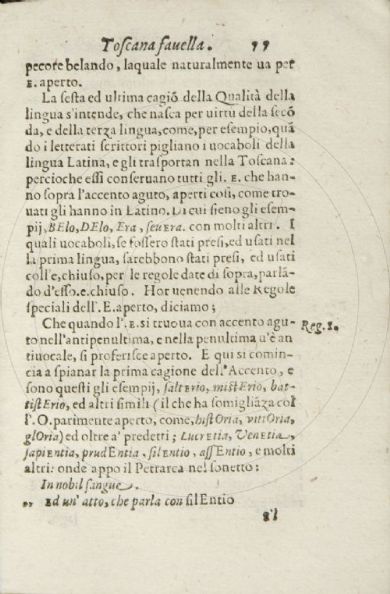 Toscana favella. 77
pecore belando, laquale naturalmente va per
E. aperto.
La sesta ed ultima cagiõ della Qualità della
lingua s'intende, che nasca per virtù della secõ
da, e della terza lingua, come, per esempio, quã
do i letterati scrittori pigliano i uocaboli della
lingua Latina, e gli trasportan nella Toscana:
percioche essi conseruano tutti gli .E. che han-
no sopra l'accento aguto, aperti così, come tro-
uati gli hanno in Latino. Di cui sieno gli esem-
pij, BElo, DElo, Era, seuEra. con molti altri. I
quali uocaboli, se fossero stati presi, ed usati nel
la prima lingua, sarebbono stati presi, ed usati
coll'e, chiuso, per le regole date di sopra, parlã-
do d'esso .e. chiuso. Hor venendo alle Regole
speciali dell'.E. aperto, diciamo;
Che quando l'.E. si truoua con accento agu- Reg. I.
to nell'antipenultima, e nella penultima u'è an
tiuocale, si proferisce aperto. E qui si comin-
cia a spianar la prima cagione dell'Accento, e
sono questi gli esempij, salterio, mistErio, bat-
tistErio, ed altri simili (il che ha somigliãza col
l'.O. parimente aperto, come, histOria, vittOria,
glOria) ed oltre a' predetti; Lucretia, Venetia,
sapiEntia, prudEntia, silEntio, assEntio, e molti
altri: onde appo il Petrarca nel sonetto:
In nobil sangue.
„ Ed un' atto, che parla con silEntio